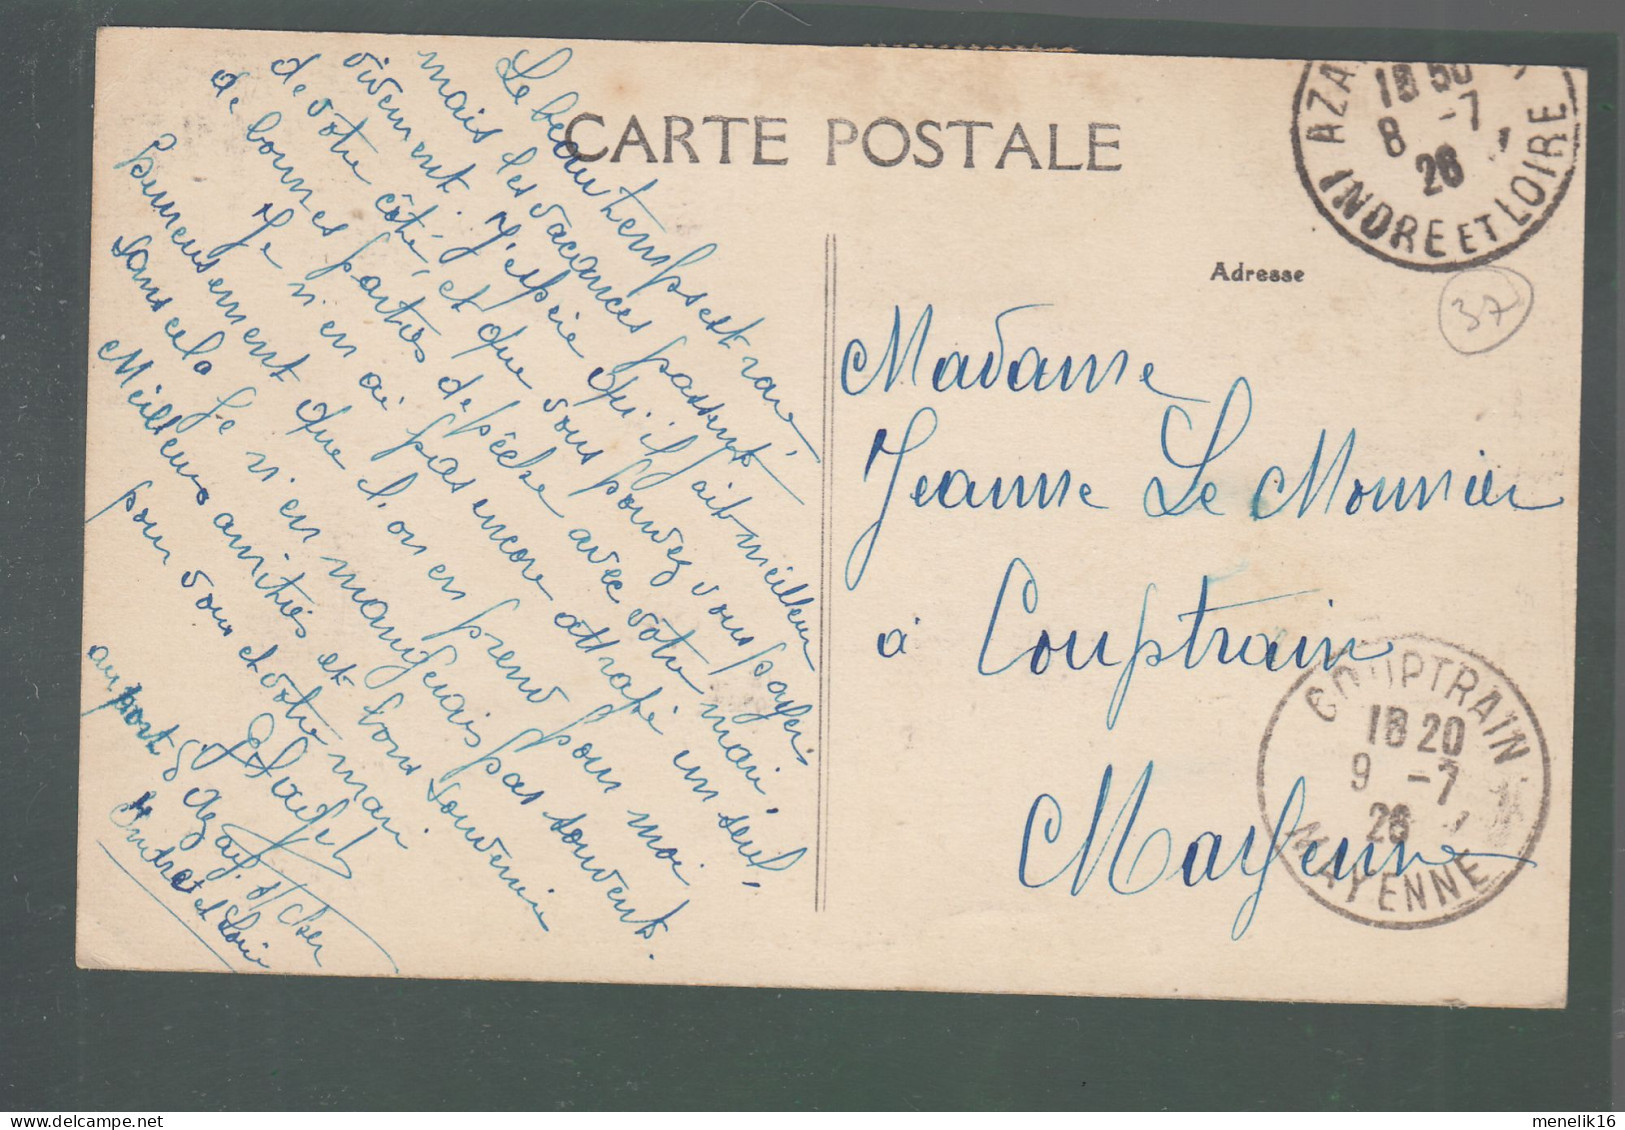 CARTE POSTALE
Adresse
Le beau temps est rare
mais les vacances passent
vivement. J'espère qu'il fait meilleur
de votre côté, et que vous pouvez vous payer
de bonnes parties de pêche avec votre mari.
Je n'en ai pas encore attrapé un seul.
Heureusement que l'on en prend pour moi
sans cela je n'en mangerais pas souvent.
Meilleures amitiés et bons souvenirs
pour vous et votre mari
au pont d'Azay s/ Cher
Indre et Loire
Madame
Jeanne Le Monnier
à Couptrain
Mayenne
AZA
18 50
8 -7
26
INDRE ET LOIRE
37
COUPTRAIN
18 20
9 -7
26
MAYENNE
menelik16